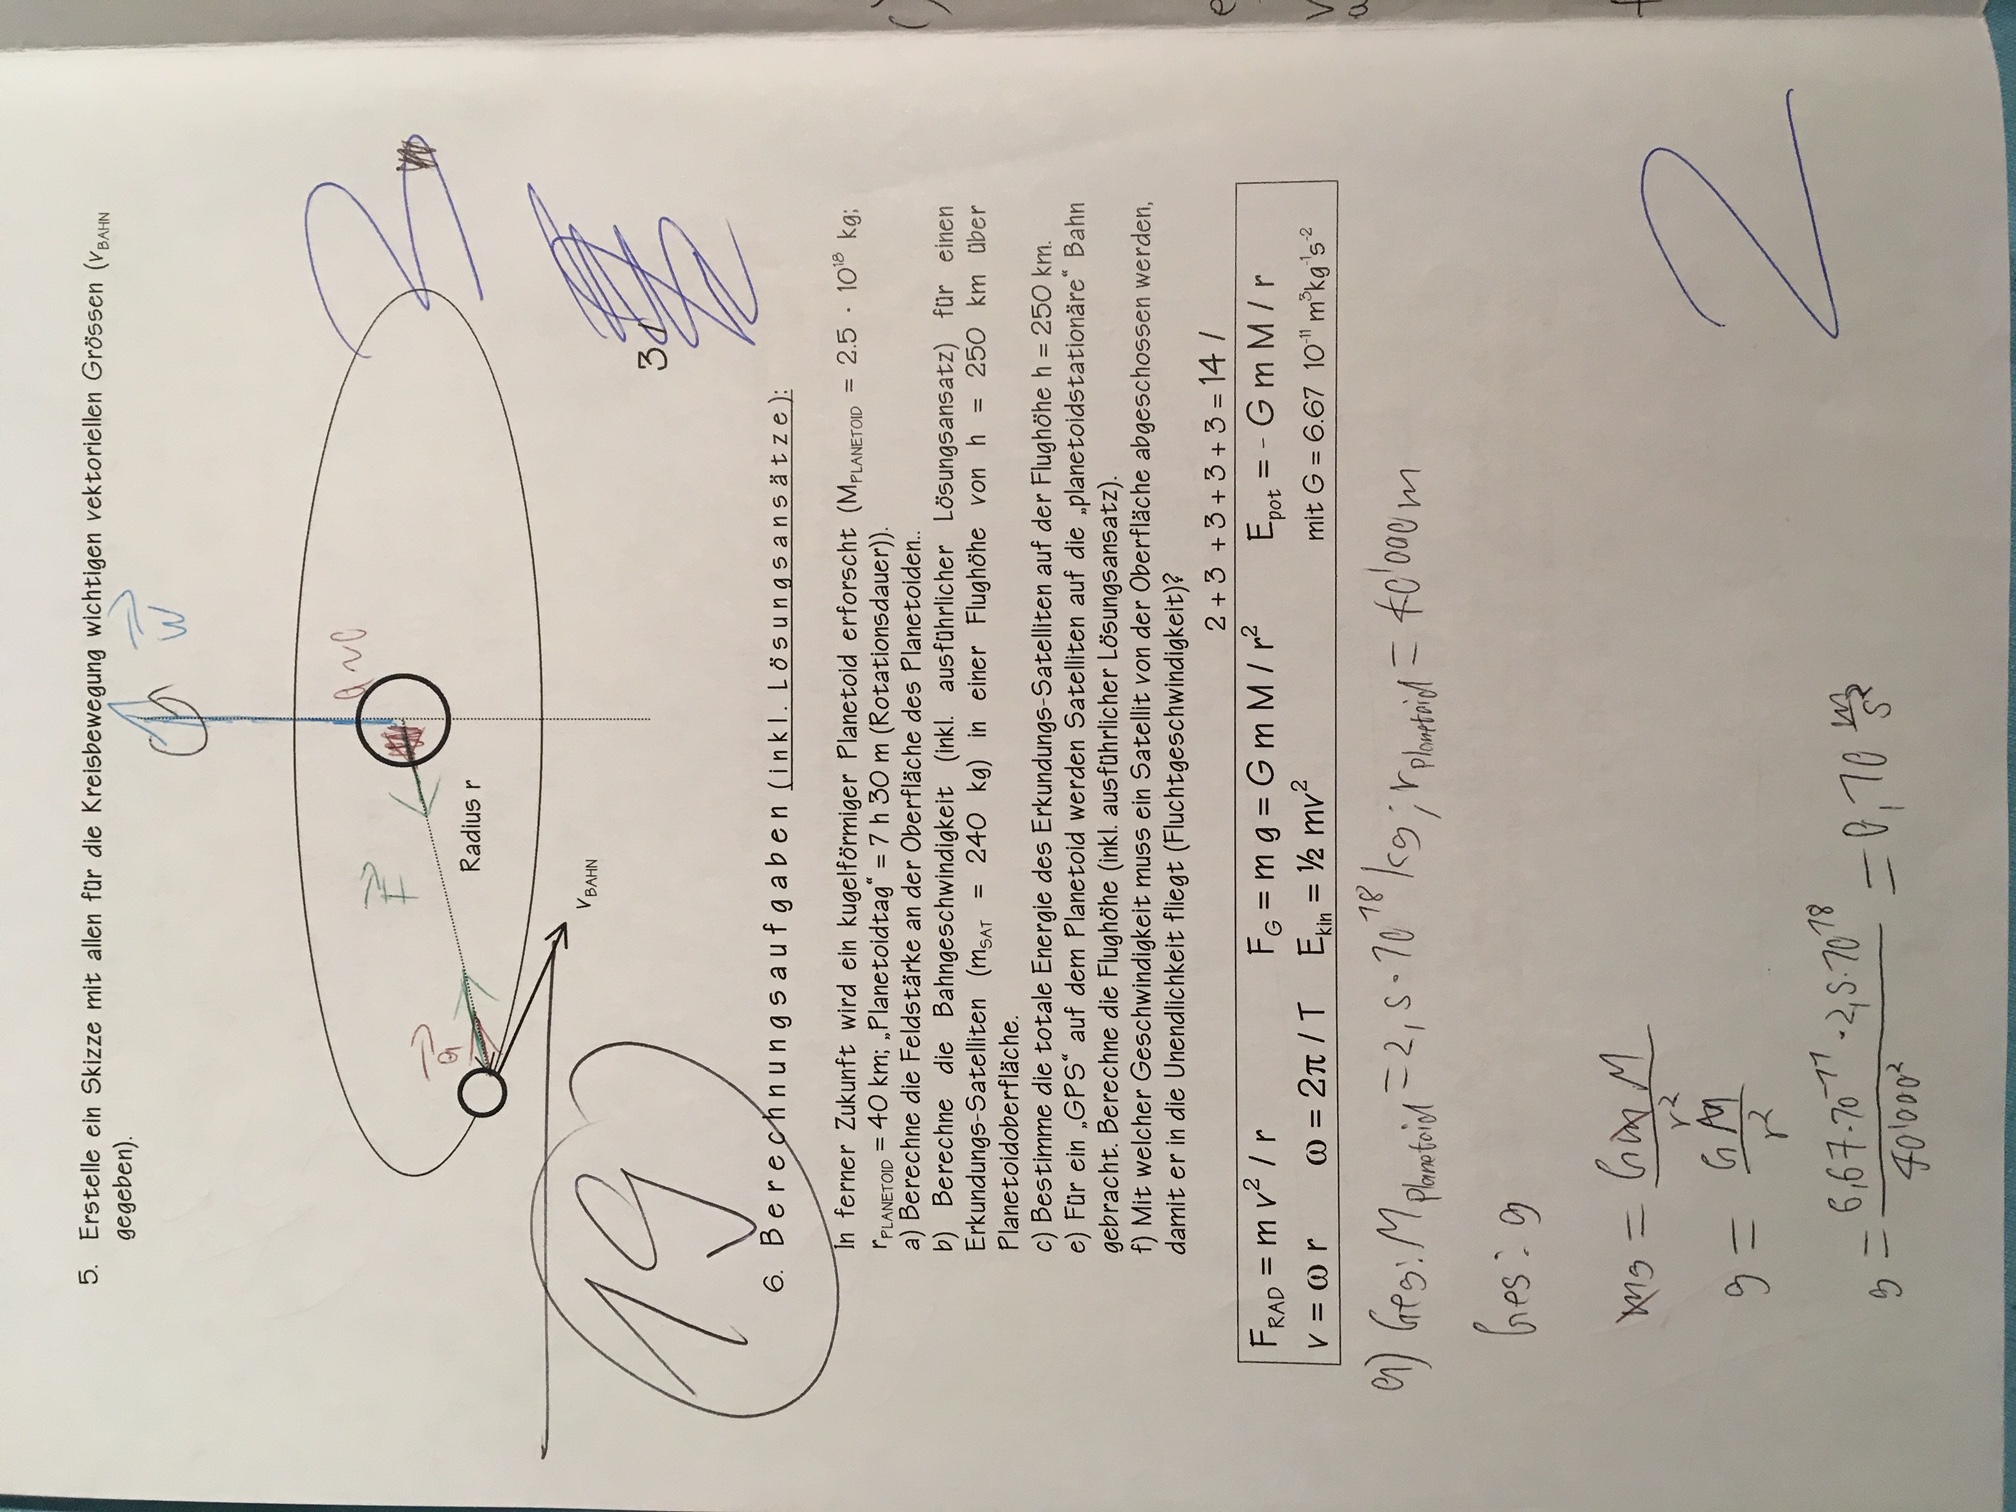 5. Erstelle ein Skizze mit allen für die Kreisbewegung wichtigen vektoriellen Grössen (vBAHN
gegeben).
W
a~0
F
a
Radius r
2
vBAHN
19
3
6. Berechnungsaufgaben (inkl. Lösungsansätze):
In ferner Zukunft wird ein kugelförmiger Planetoid erforscht (MPLANETOID = 2.5 · 10¹⁸ kg;
rPLANETOID = 40 km; „Planetoidtag“ = 7 h 30 m (Rotationsdauer)).
a) Berechne die Feldstärke an der Oberfläche des Planetoiden..
b) Berechne die Bahngeschwindigkeit (inkl. ausführlicher Lösungsansatz) für einen
Erkundungs-Satelliten (mSAT = 240 kg) in einer Flughöhe von h = 250 km über
Planetoidoberfläche.
c) Bestimme die totale Energie des Erkundungs-Satelliten auf der Flughöhe h = 250 km.
e) Für ein „GPS“ auf dem Planetoid werden Satelliten auf die „planetoidstationäre“ Bahn
gebracht. Berechne die Flughöhe (inkl. ausführlicher Lösungsansatz).
f) Mit welcher Geschwindigkeit muss ein Satellit von der Oberfläche abgeschossen werden,
damit er in die Unendlichkeit fliegt (Fluchtgeschwindigkeit)?
2 + 3 + 3 + 3 + 3 = 14 /
FRAD = m v² / r FG = m g = G m M / r² Epot = - G m M / r
v = ω r ω = 2π / T Ekin = ½ mv² mit G = 6.67 10⁻¹¹ m³kg⁻¹s⁻²
a) Geg: MPlanetoid = 2,5 · 10¹⁸ kg; rPlanetoid = 40'000m
Ges: g
mg = GmM / r²
g = GM / r²
g = 6,67·10⁻¹¹ · 2,5·10¹⁸ / 40'000² = 0,10 m/s²
2